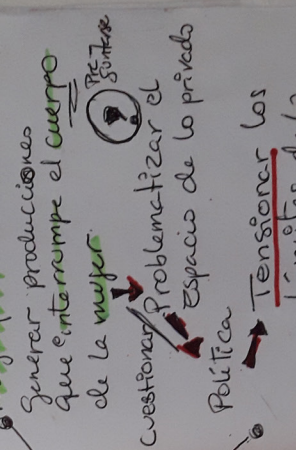 Generar producciones
que enterrumpe el cuerpo
de la mujer
Pre-
guntarse
?
Cuestionar/Problematizar el
espacio de lo privado
Política
Tensionar los